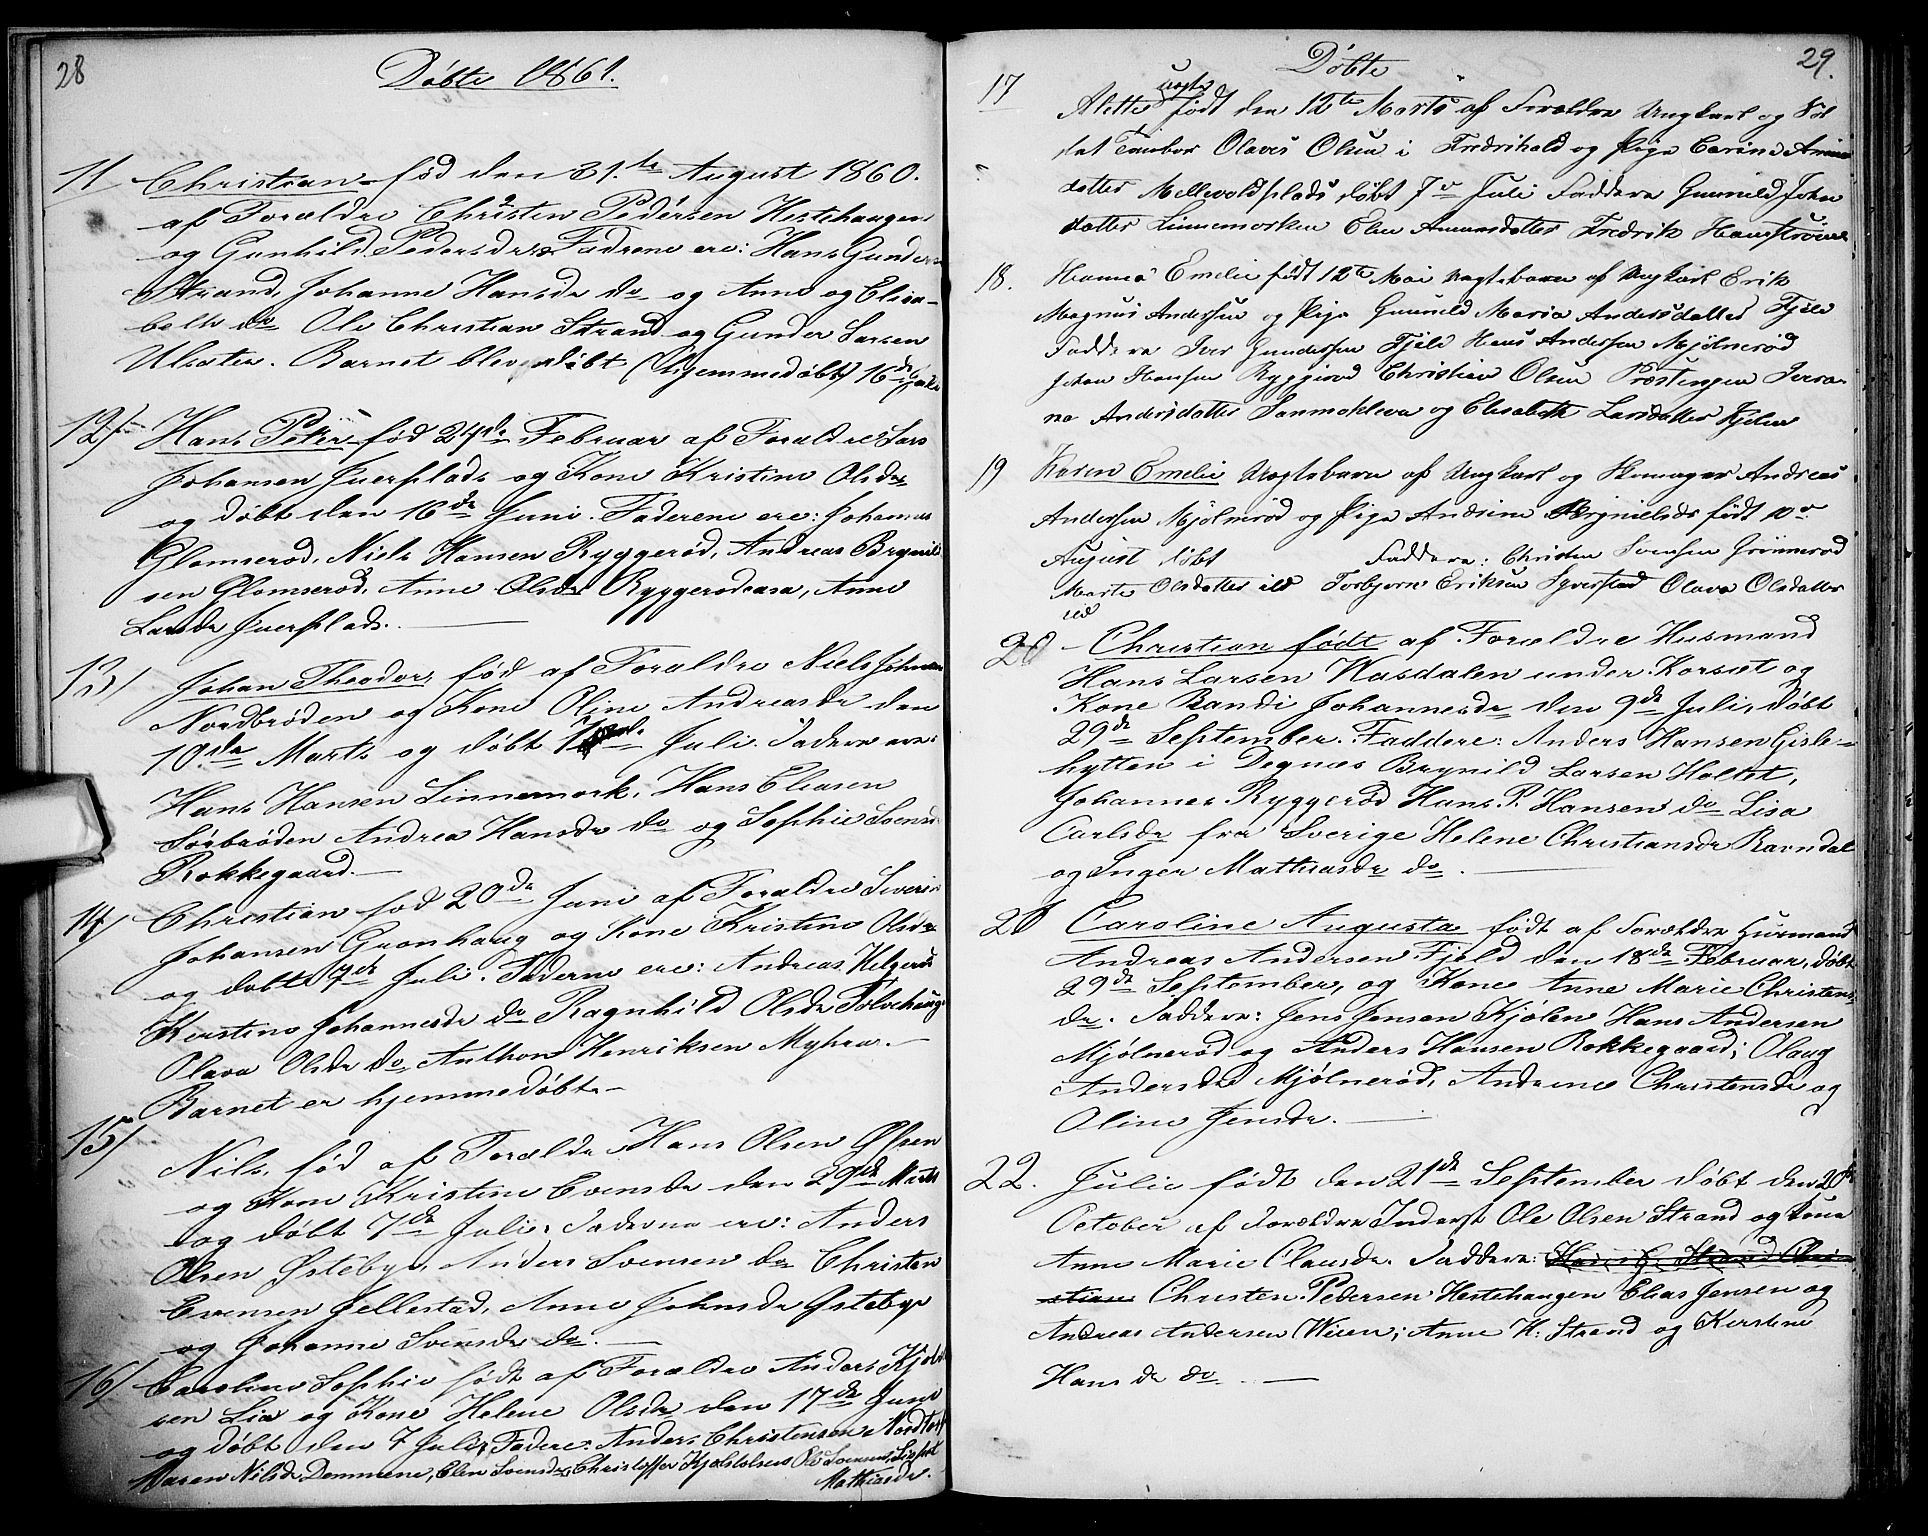 28
Døbte 1861.
11/ Christian fød den 31.te August 1860.
af Forældre Christen Pedersen Hestehaugen
og Gunhild Pedersdr. Fadrene ere: Hans Gunders
Strand, Johanne Hansdr do og Anne og Elisa-
beth do Ole Christian Strand og Gunder Larsen
Ulsæter. Barnet bleven døbt (hjemmedøbt) 16de
12/ Hans Peter fød 24de Februar af Forældre Lars
Johansen Juerplads og Kone Kristine Olsdr
og døbt den 16de Juni. Faderene ere: Johannes
Glomserød, Niels Hansen Ryggerød, Andreas Brynild
sen Glomserød, Anne Olsdr Ryggerødeasa, Anne
Larsdr Juerplads.
13/ Johan Theodor, fød af Forældre Niels Johansen
Nordbrøden og Kone Oline Andreasdr den
10de Marts og døbt 7de Juli. Fadere ere:
Hans Hansen Linnemork, Hans Eliasen
Sørbrøden Andrea Hansdr do og Sophie Svensd
Rokkegaard.
14/ Christian fød 20de Juni af Forældre Severin
Johansen Grønhaug og Kone Kristine Olsdr
og døbt 7de Juli. Faderne ere: Andreas Helgerød
Kirstine Johannesdr do Ragnhild Olsdr Tolvehaug
Olava Olsdr do Anthon Henriksen Myhra.
Barnet er hjemmedøbt.
15/ Nils, fød af Forældre Hans Olsen
og Kone Kristine Evensdr den 29de Marts
og døbt 7de Juli. Faderne ere: Anders
Olsen Østebye, Anders Svensen do Christen
Evensen Jellestad, Anne Johnsdr Østebye
og Johanne Svensdr do.
16/ Caroline Sophie født af Forældre Anders Kjøls
sen Lia og Kone Helene Olsdr den 17de Juni
og døbt den 7 Juli, Fadere: Anders Christensen Nordtorp
Maren Nilsdr Demmene, Elen Svensdr, Christoffer Kjølstolsen Ole Svensen,
Mathiasdr.
29.
Døbte
17 Alette uægte født den 12te Marts af Forældre Ungkarl og Sol
dat Tambor Olaves Olsen i Fredrikhald og Pige Carine
datter Mellevoldplads døbt 7de Juli Faddere Gunnild Johan
datter Linnemorken Elen Amunsdatter Fredrik
18. Hanna Emelie født 12te Mai uægtebarn af Ungkarl Erik
Magnus Andersen og Pige Gunnild Maria Andersdatter Fjeld
Faddere Iver Gundersen Fjeld Hans Andersen Mjølnerød
Johan Hansen Ryggerød Christian Olsen Præstengen
ne Andersdatter Sanmokleva og Elisabeth Larsdatter Kjølen
19 Karen Emelie Uægtebarn af Ungkarl og Skomager Andreas
Andersen Mjølnerød og Pige Andrine Brynieldsdr født 10de
August døbt Faddere: Christen Svensen Grønnerød
Marte Olsdatter ild Torbjørn Eriksen Syverstad Olava Olsdatter
ild
20 Christian født af Forældre Husmand
Hans Larsen Wasdalen under Korsæt og
Kone Randi Johannesdr den 9de Juli, døbt
29de September. Faddere: Anders Hansen Gisle-
hytten i Degnæs Brynild Larsen Holtet,
Johannes Ryggerød Hans P. Hansen do Lisa
Carlsdr fra Sverige Helene Christiansdr Ravndal
og Inger Mathiasdr do.
21 Caroline Augusta født af Forældre Husmand
Andreas Andersen Fjeld den 18de Februar, døbt
29de September, og Kone Anne Marie Christens
dr. Faddere: Jens Jensen Kjølen Hans Andersen
Mjølnerød og Anders Hansen Rokkegaard; Olaug
Andersdr Mjølnerød, Andrine Christensdr og
Oline Jensdr.
22. Julie født den 21de September døbt den 20de
October af Forældre Inderst Ole Olsen Strand og Kone
Anne Marie Clausdr. Faddere: Hans G. Strand Chri
stian Christen Pedersen Hestehaugen Elias Jensen og
Andreas Andersen Wiien; Anne H: Strand og Kirstine
Hansdr do.